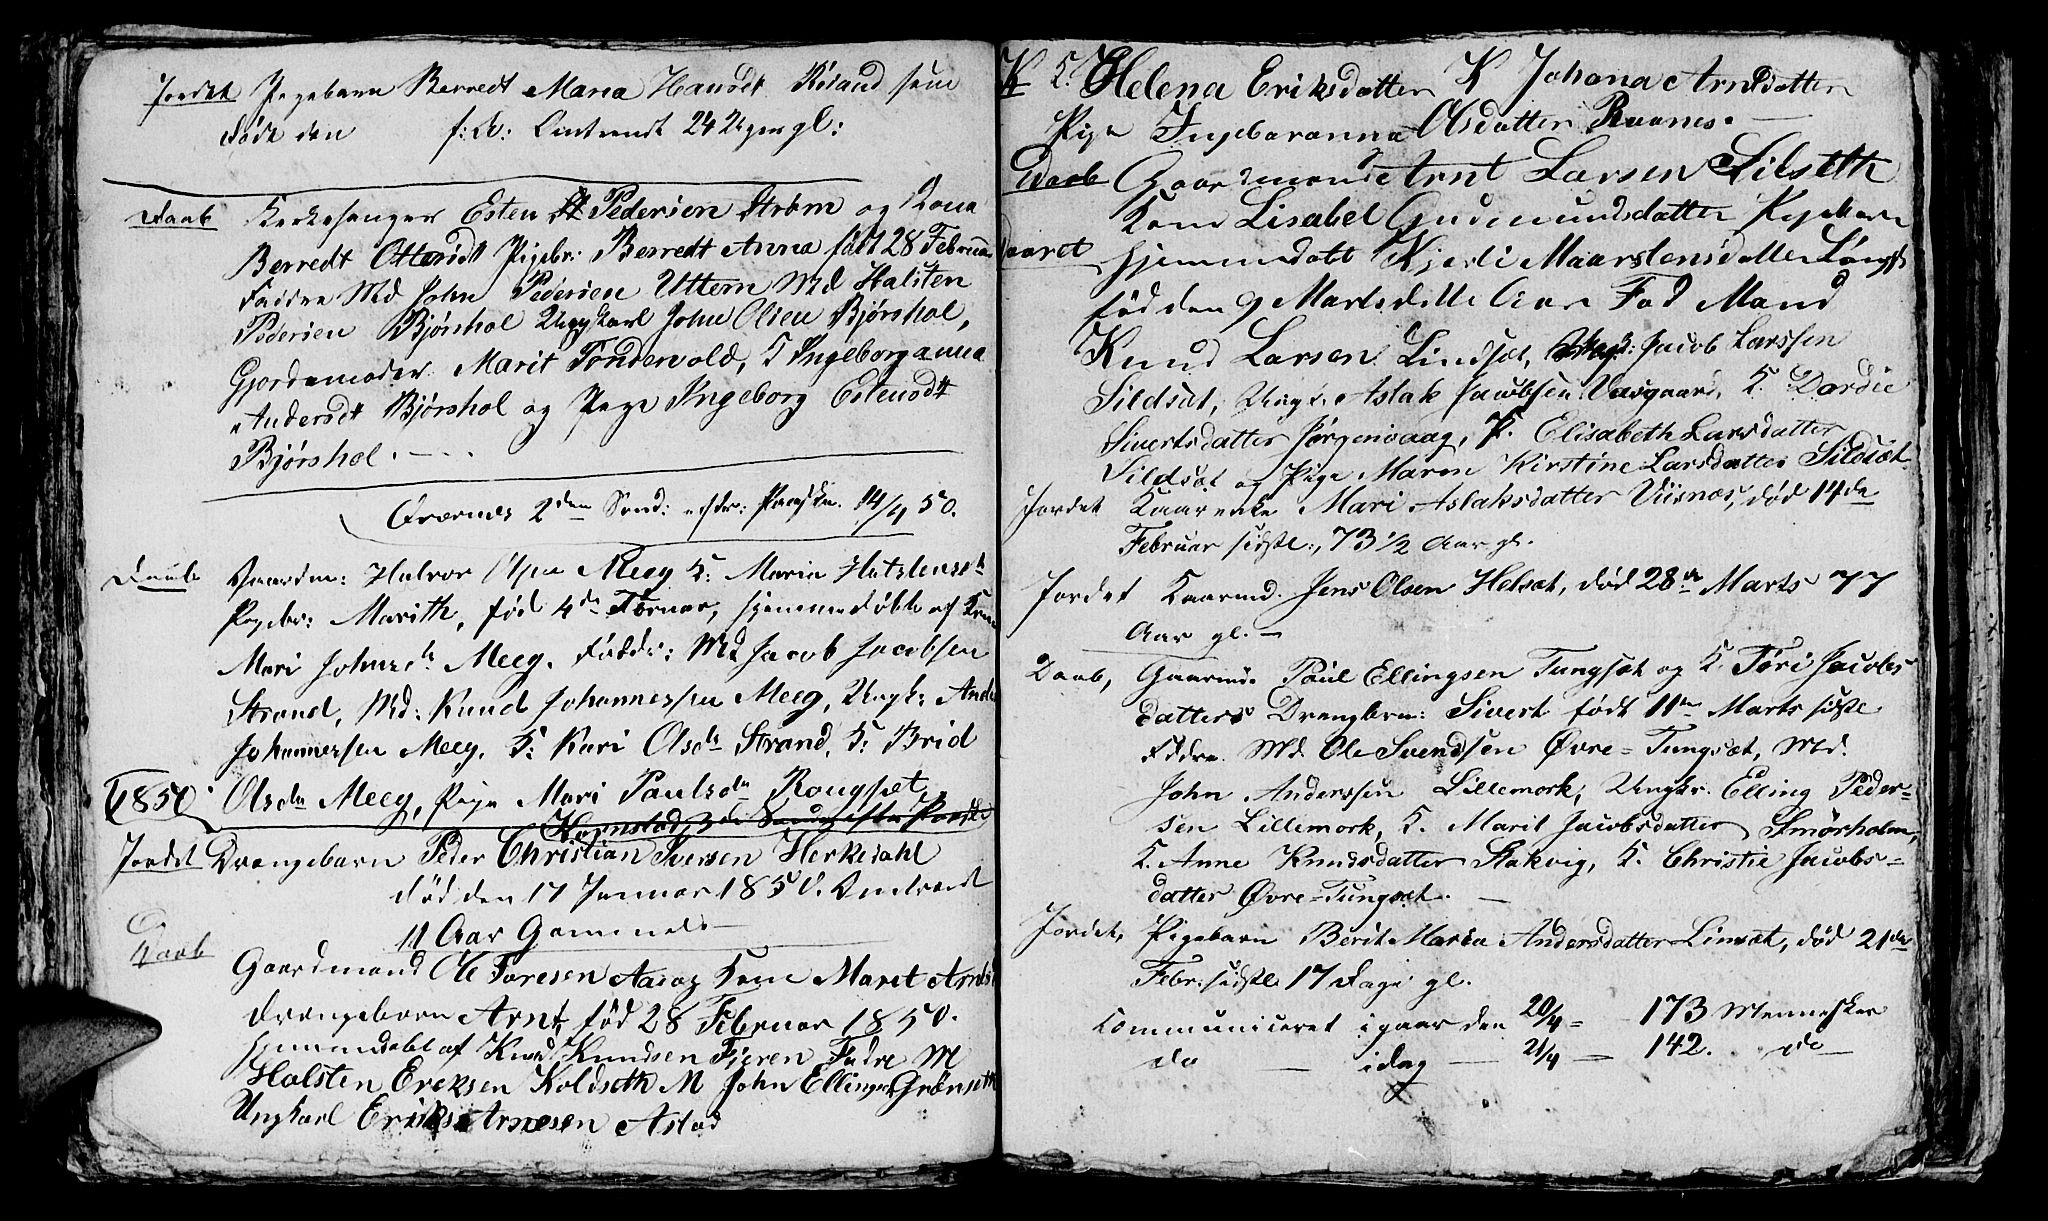 Jordet Pigebarn Berredt Maria Hansdt Roland som
født den f: A: Omtrendt 24 Uger gl:
Daab Kirkesanger Esten Pedersen Strøm og Kona
Berredt Ottersdt Pigebr: Berredt Anna født 28 Februar
Faddre Md John Pedersen Uttem Md Halsten
Pedersen Bjørshol Ungkarl John Olsen Bjørshol,
Gjordemoder Marit Tondervold, K Ingeborganna
Andersdt Bjørshol og Pige Ingeborg Estensdt
Bjørshol. — . .
Qværnes 2den Sønd: efter: Paaske. 14/4 50.
Daab Gaardm: Halvor Meeg K: Maria
Pigebr: Marith, fød 4de Februar, hjemmedøbt af Kone
Mari Johnsdr Meeg. Faddr: Md Jacob Jacobsen
Strand, Md: Knud Johannessen Meeg, Ungk: Anders
Johannessen Meeg, K: Kari Olsdr Strand, K: Brid
1850 Olsdr Meeg, Pige Mari Paulsdr Rougset,
Kornstad 3de Søndag efter Paaske
Jordet Drengebarn Peder Christian Iversen Herkedahl
død den 17 Januar 1850. Omtrendt
11 Aar Gammel —
Daab Gaardmand Ole Toresen Aasag Kone Maret Arntsd
Drengebarn Arnt, fød 28 Februar 1850.
hjemmedøbt af Knud Knudsen Fieren Fadre M
Halsten Eriksen Koldseth M John Ellingsen Grønseth
Ungkarl Erik Arnesen Astad
K K. Helena Eriksdatter K Johana Arntsdatter
Pige Ingebaranna Olsdatter Raanes. —
Daab Gaardmand Arnt Larsen Silseth
Kone Lisabel Gudmundsdatter Pigebarn
hjemmedøbt Kjersti Maarstensdatter
fød den 9 Marts dette Aar Fad Mand
Knud Larsen Lindsæt, Ungk: Jacob Larssen
Sildsæt, Ungk. Aslak Jacobsen Vasgaard, K. Dordie
Sivertsdatter Jørgenvaag, P. Elisabeth Larsdatter
Sildsæt og Pige Maren Kirstine Larsdatter Sildsæt.
Jordet Kaarenke Mari Aslaksdatter Viisnæs, død 14de
Februar sidstl:, 73 1/2 Aar gl.
Jordet Kaarmd. Jens Olsen Helsæt, død 28de Marts 77
Aar gl. —
Daab, Gaardmd. Paul Ellingsen Tungsæt og K. Tøri Jacobs
datters Drengbrn: Sivert født 11te Marts sidstl.
Fddre. Md. Ole Svendsen Øvre=Tungsæt, Md.
John Anderssen Lillemork, Ungkr. Elling Peder=
sen Lillemork, K. Marit Jacobsdatter Smørholm,
K. Anne Knudsdatter Stakvig, K. Christie Jacobs=
datter Øvre=Tungsæt. —
Jordet, Pigebarn Berit Maria Andersdatter Linsæt, død 21de
Febr. sidstl. 17 Dage gl.
Communiceret igaar den 20/4 = 173 Mennesker
do — idag — 21/4 — 142. do